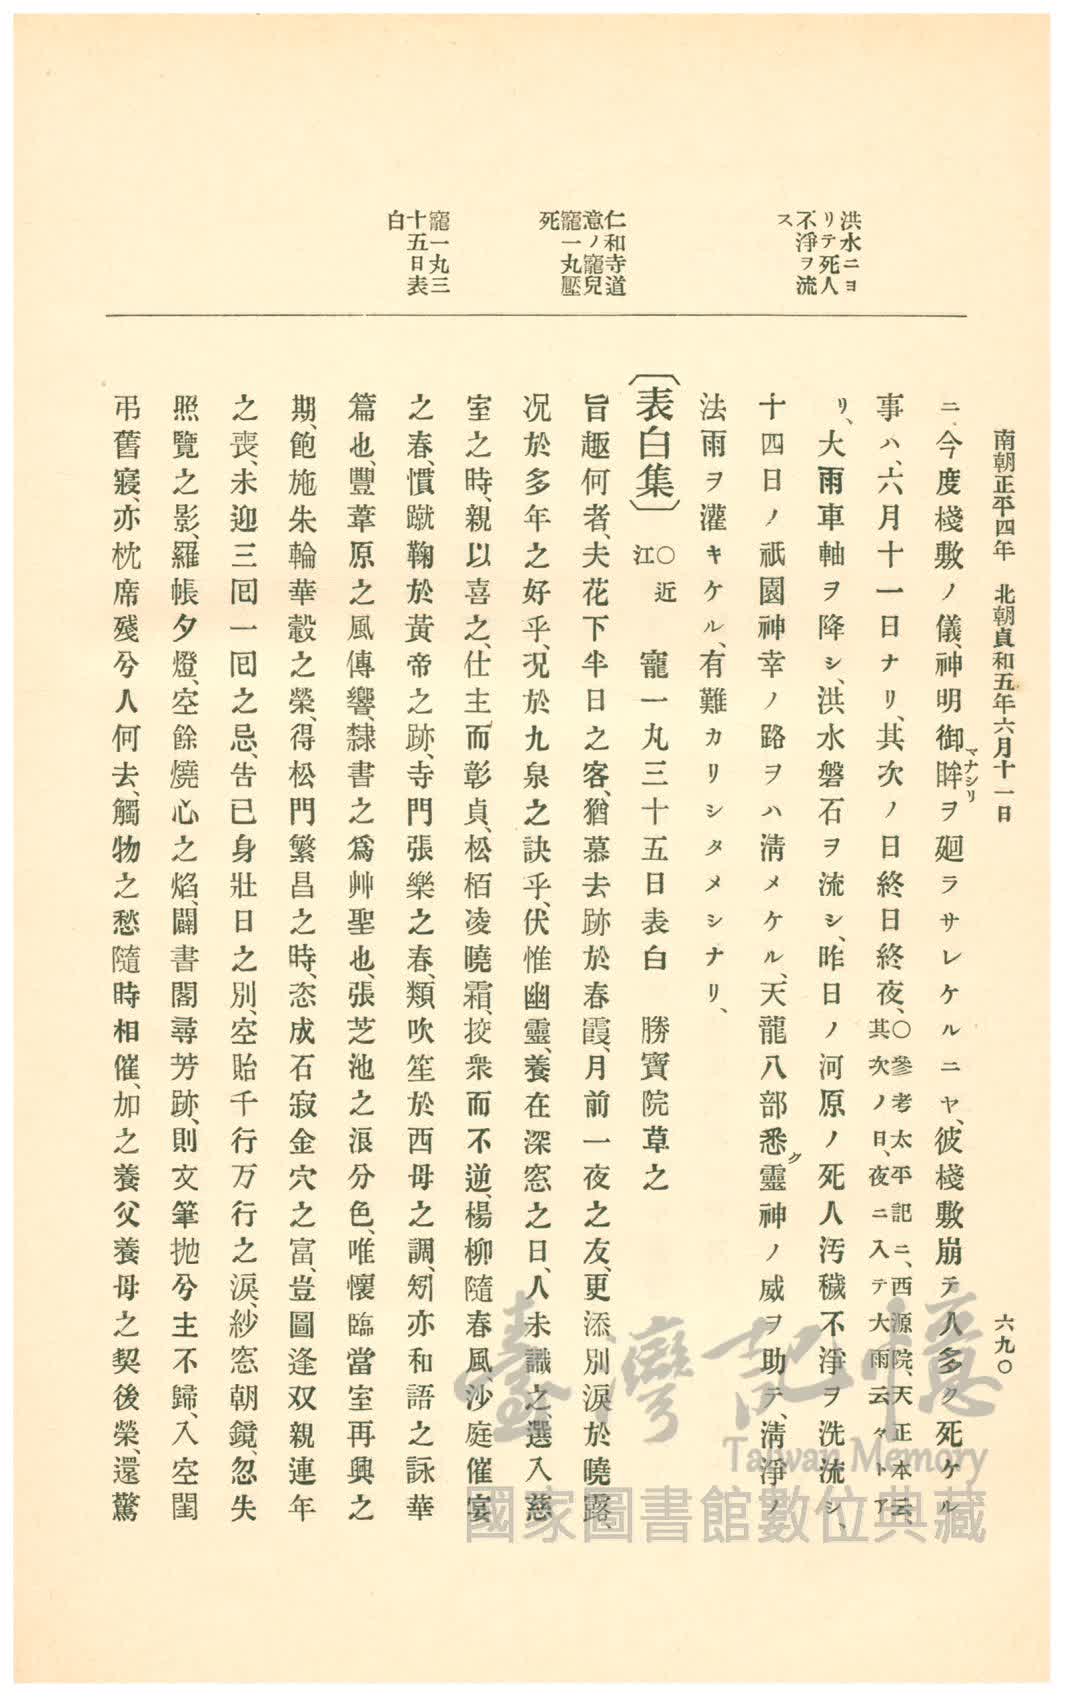 南朝正平四年　北朝貞和五年六月十一日
六九〇
洪水ニヨ
リテ死人
不淨ヲ流
ス
仁和寺道
意ノ寵兒
寵一丸壓
死
寵一丸三
十五日表
白
ニ、今度棧敷ノ儀、神明御眸ヲ廻ラサレケルニヤ、彼棧敷崩テ人多ク死ケル
マナシリ
事ハ、六月十一日ナリ、其次ノ日終日終夜、〇參考太平記ニ、西源院、天正本云、其次ノ日、夜ニ入テ大雨云々トア
リ、大雨車軸ヲ降シ、洪水磐石ヲ流シ、昨日ノ河原ノ死人汚穢不淨ヲ洗流シ、
十四日ノ祇園神幸ノ路ヲハ淸メケル、天龍八部悉ク靈神ノ威ヲ助テ、淸淨ノ
法雨ヲ灌キケル、有難カリシタメシナリ、
〔表白集〕〇近江　寵一丸三十五日表白　勝寶院草之
旨趣何者、夫花下半日之客、猶慕去跡於春霞、月前一夜之友、更添別淚於曉露、
况於多年之好乎、况於九泉之訣乎、伏惟幽靈、養在深窓之日、人未識之、選入慈
室之時、親以喜之、仕主而彰貞、松栢凌曉霜、挍衆而不逆、楊柳隨春風、沙庭催宴
之春、慣蹴鞠於黃帝之跡、寺門張樂之春、類吹笙於西母之調、矧亦和語之詠華
篇也、豐葦原之風傳響、隸書之爲艸聖也、張芝池之浪分色、唯懷臨當室再興之
期、飽施朱輪華轂之榮、得松門繁昌之時、恣成石寂金穴之富、豈圖逢双親連年
之喪、未迎三囘一囘之忌、告已身壯日之別、空貽千行万行之淚、紗窓朝鏡、忽失
照覽之影、羅帳夕燈、空餘燒心之焰、闢書閣尋芳跡、則文筆抛兮主不歸、入空閨
弔舊寢、亦枕席殘兮人何去、觸物之愁隨時相催、加之養父養母之契後榮、還驚
臺灣記憶
Taiwan Memory
國家圖書館數位典藏